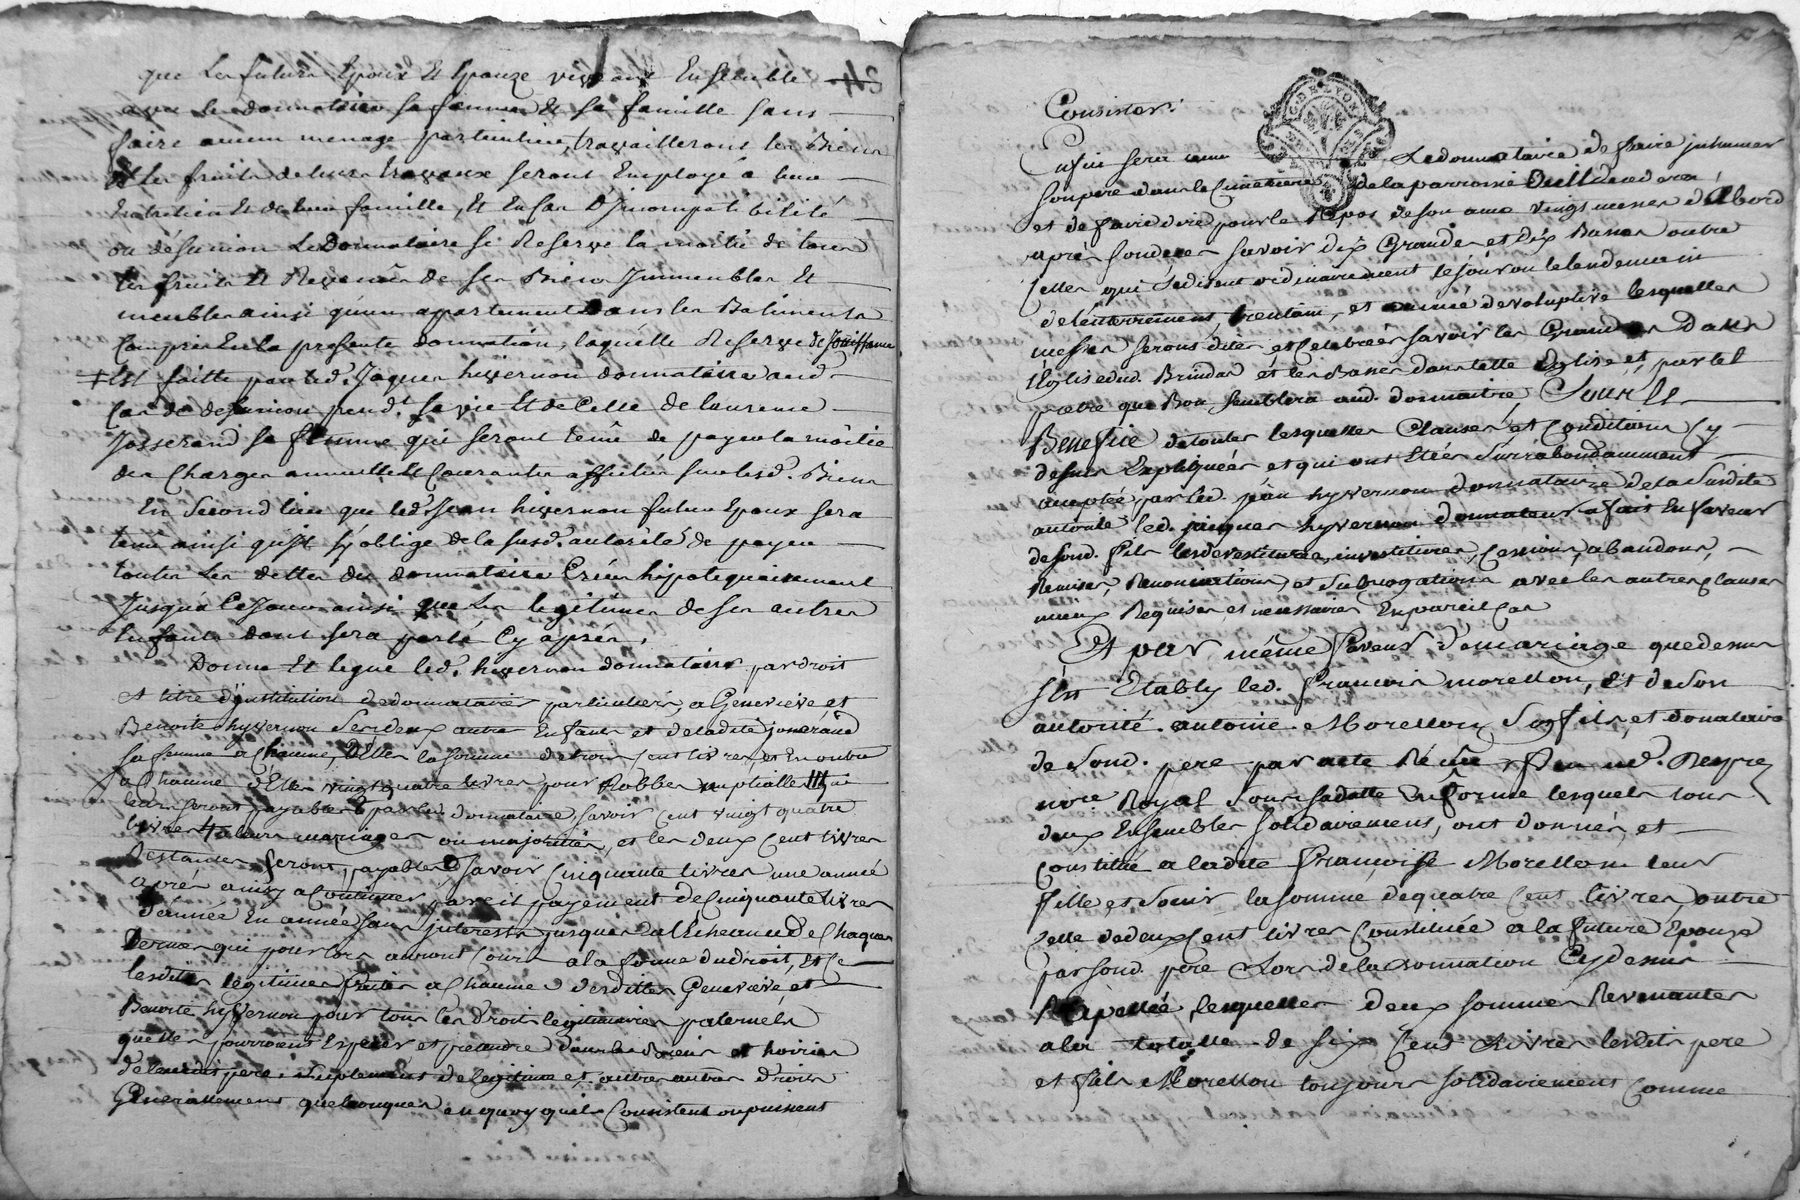 que les futurs Epoux Et Epouze vivrant Ensemble
avec le donnataire sa femme & sa famille sans
faire aucun menage particulier, travailleront les Biens
Et les fruits de leurs travaux seront Employé à leur
Entretien Et de leur famille, Et En Cas D'incompatibilité
ou désunion Le Donnataire se Reserve la moitié de tous
les fruits & Revenûs de ses Biens Immeubles Et
meubles ainsi qu'un appartement Dans les Batiments
Compris En la presente donnation, laquelle Reserve de Jouissance
Est faitte par led. Jaques hivernon donnataire aud.
Cas de desunion pend.t sa vie Et de Celle de laurence
Josserand sa femme qui seront tenû de payer la moitié
des Charges annuelle Et Courantes affectées sur lesd. Biens
En Second lieu que led. Jean hivernon futur Epoux sera
tenû ainsi qu'il s'y oblige de la susd. autorité de payer
toutes les dettes du donnataire Créées hipotequairement
Jusquà Ce Jour ainsi que les legitimes de ses autres
Enfants dont sera parlé Cy après,
Donne Et legue led. hivernon donnataire par droit
et titre d'institution de donnataires particuliers, a Genevieve et
Benoite hyvernon Ses deux autres Enfants et de ladite josserand
sa femme a Chacune d'Elles la somme de trois Cent livres, et En outre
a Chacune d'Elles vingt quatre livres pour Robbes nuptialles qui
leur seront payables par les donnataire, savoir Cent vingt quatre
livres a leurs mariages ou majorités, et les deux Cent livres
Restantes seront payables savoir Cinquante livres une année
après ainsy a Continuer pareil payement de Cinquante livres
d'année En année sans interests jusques a l'Echeance de Chaque
termes qui pour lors auront Cours a la forme du droit, Et Ce
lesdites legitimes faites a Chacune desdittes Genevieve, et
Benoite hyvernon pour tous les droits legitimaires paternels
quelles pourroient Esperer et pretendre dans les Biens et hoiries
de leurdit pere, suplement de legitime et autres autres droits
Generallement quelconques en quoy quils Consistent ou puissent
Consister.
Enfin sera tenu Le donnataire de faire inhumer
Son pere dans le Cimetiere de la parroisse
et de faire dire pour le Repos de son ame vingt messes d'Abord
après son deces savoir dix Grandes et dix Basses outre
Celles qui se disent ordinairement le jour ou le lendemain
de l'enterrement, trentain, et année devoluptive lesquelles
messes seront dites et Celebrées savoir les Grandes Dans
l'Eglise dud. Brindas et les Basses dans telle Eglise et, par tel
pretre que Bon semblera aud. donnaitre, Sous le
Benefice de toutes lesquelles Clauses et Conditions Cy
dessus Expliquées et qui ont Etées Surabondamment
acceptée par led. jean hyvernon donnataire de la Susdite
autorité led. jaques hyvernon donnateur a fait En faveur
de sond. fils les devestitures, investitures, Cessions, abandons,
Remises, Renonciations, et Subrogations avec les autres Clauses
mieux Requises et necessaires En pareil Cas
Et par même faveur de mariage que dessus
s'est Etably led. francois morellon, Et de Son
autorité. antoine Morellon Son fils, et donataire
de Sond. pere par acte Recûe par med. Reyre
no.re Royal Sous sa datte En forme lesquels tous
deux Ensembles solidairement, ont donnés, et
Constitué a ladite françoise Morellon leur
fille et soeur la somme de quatre Cent livres, outre
Celle de deux Cent livres Constituée a la future Epouze
par sond. pere Lors de la donnation Cy dessus
Rapellée, lesquelles deux sommes Revenantes
a la totalle de six Cent Livres lesdits pere
et fils Morellon toujours solidairement Comme